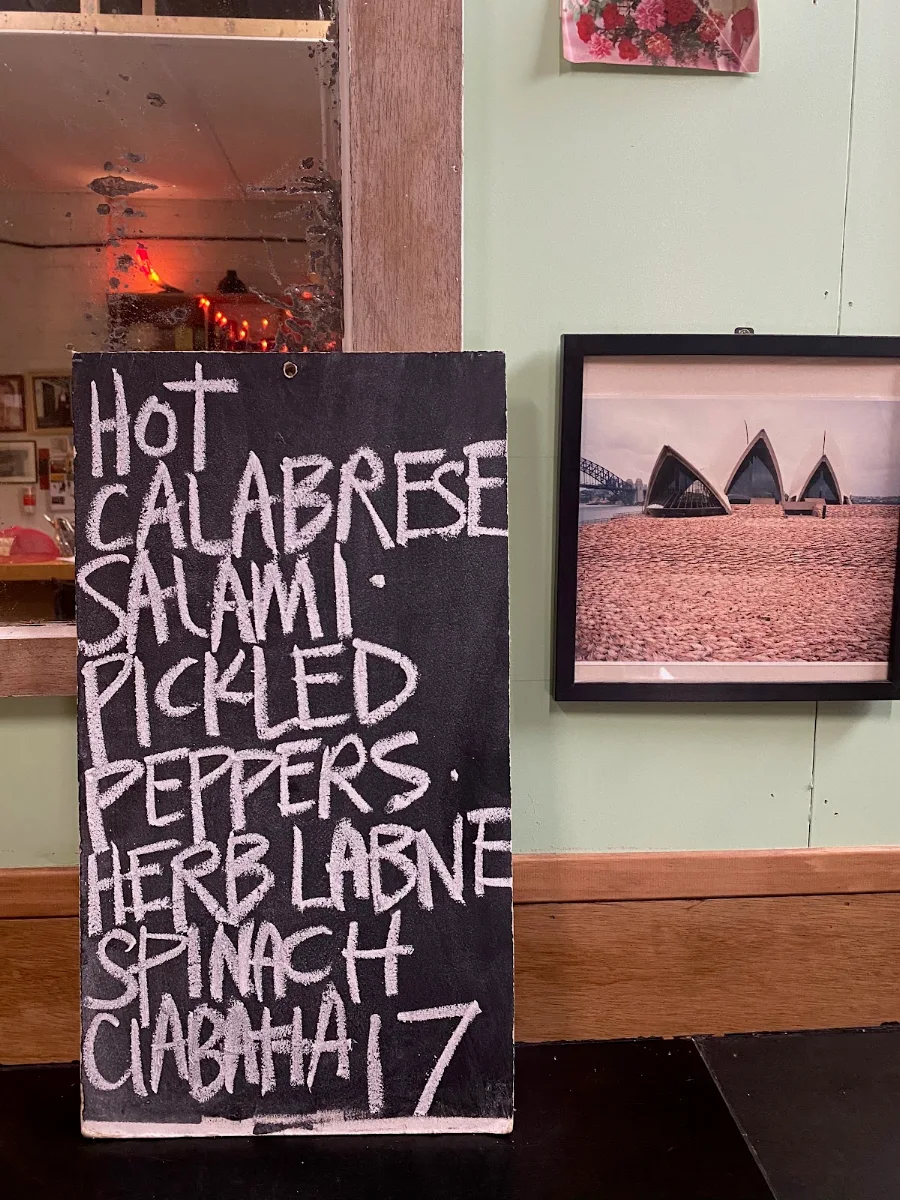 HOT
CALABRESE
SALAMI.
PICKLED
PEPPERS.
HERB LABNE
SPINACH
CIABATTA 17